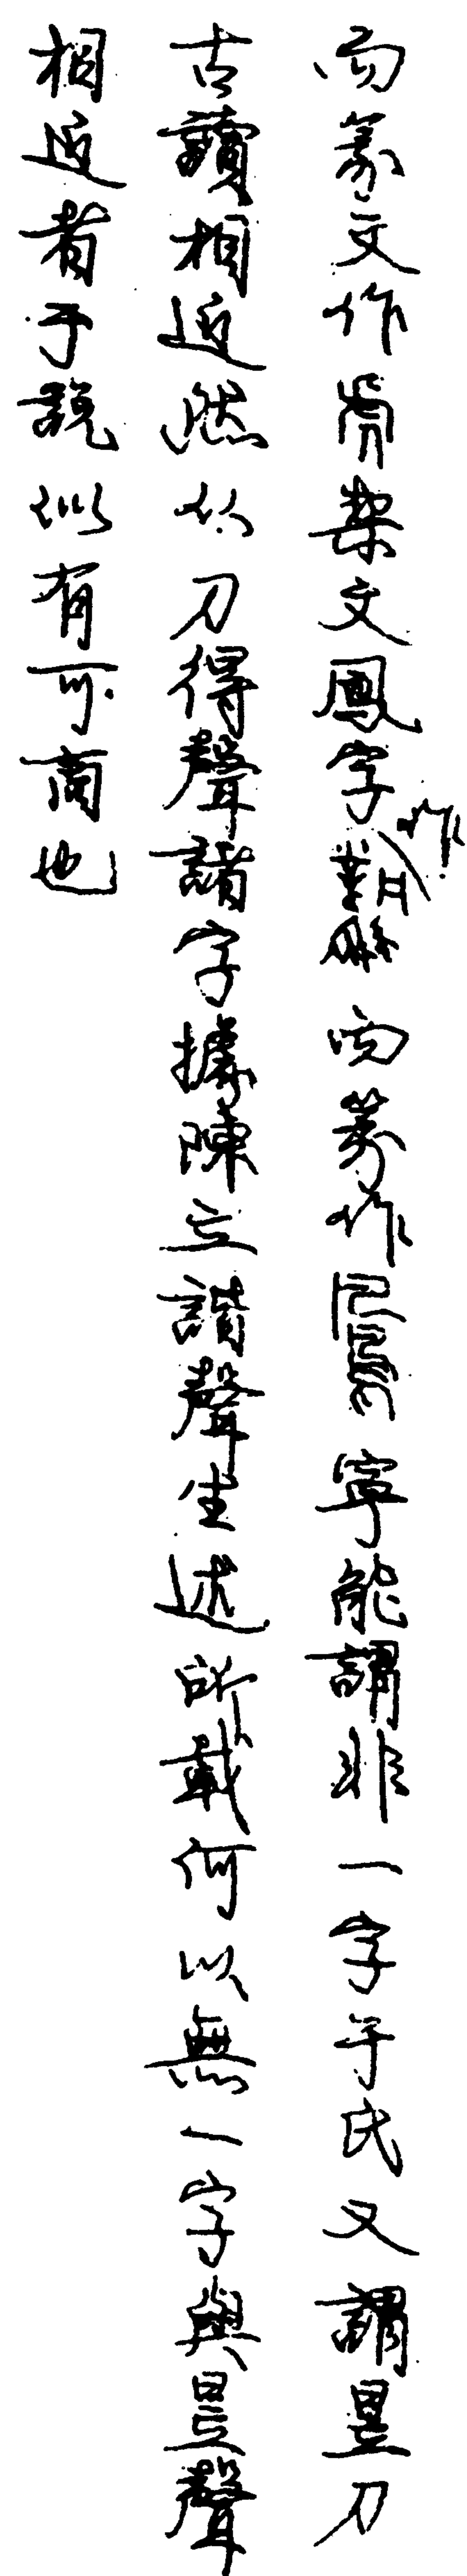 而篆文作契文鳳字作而篆作寧能謂非一字于氏又謂昱刀
古讀相近然从刀得聲諸字據陳立諧聲生述所載何以無一字與昱聲
相近者于說似有可商也